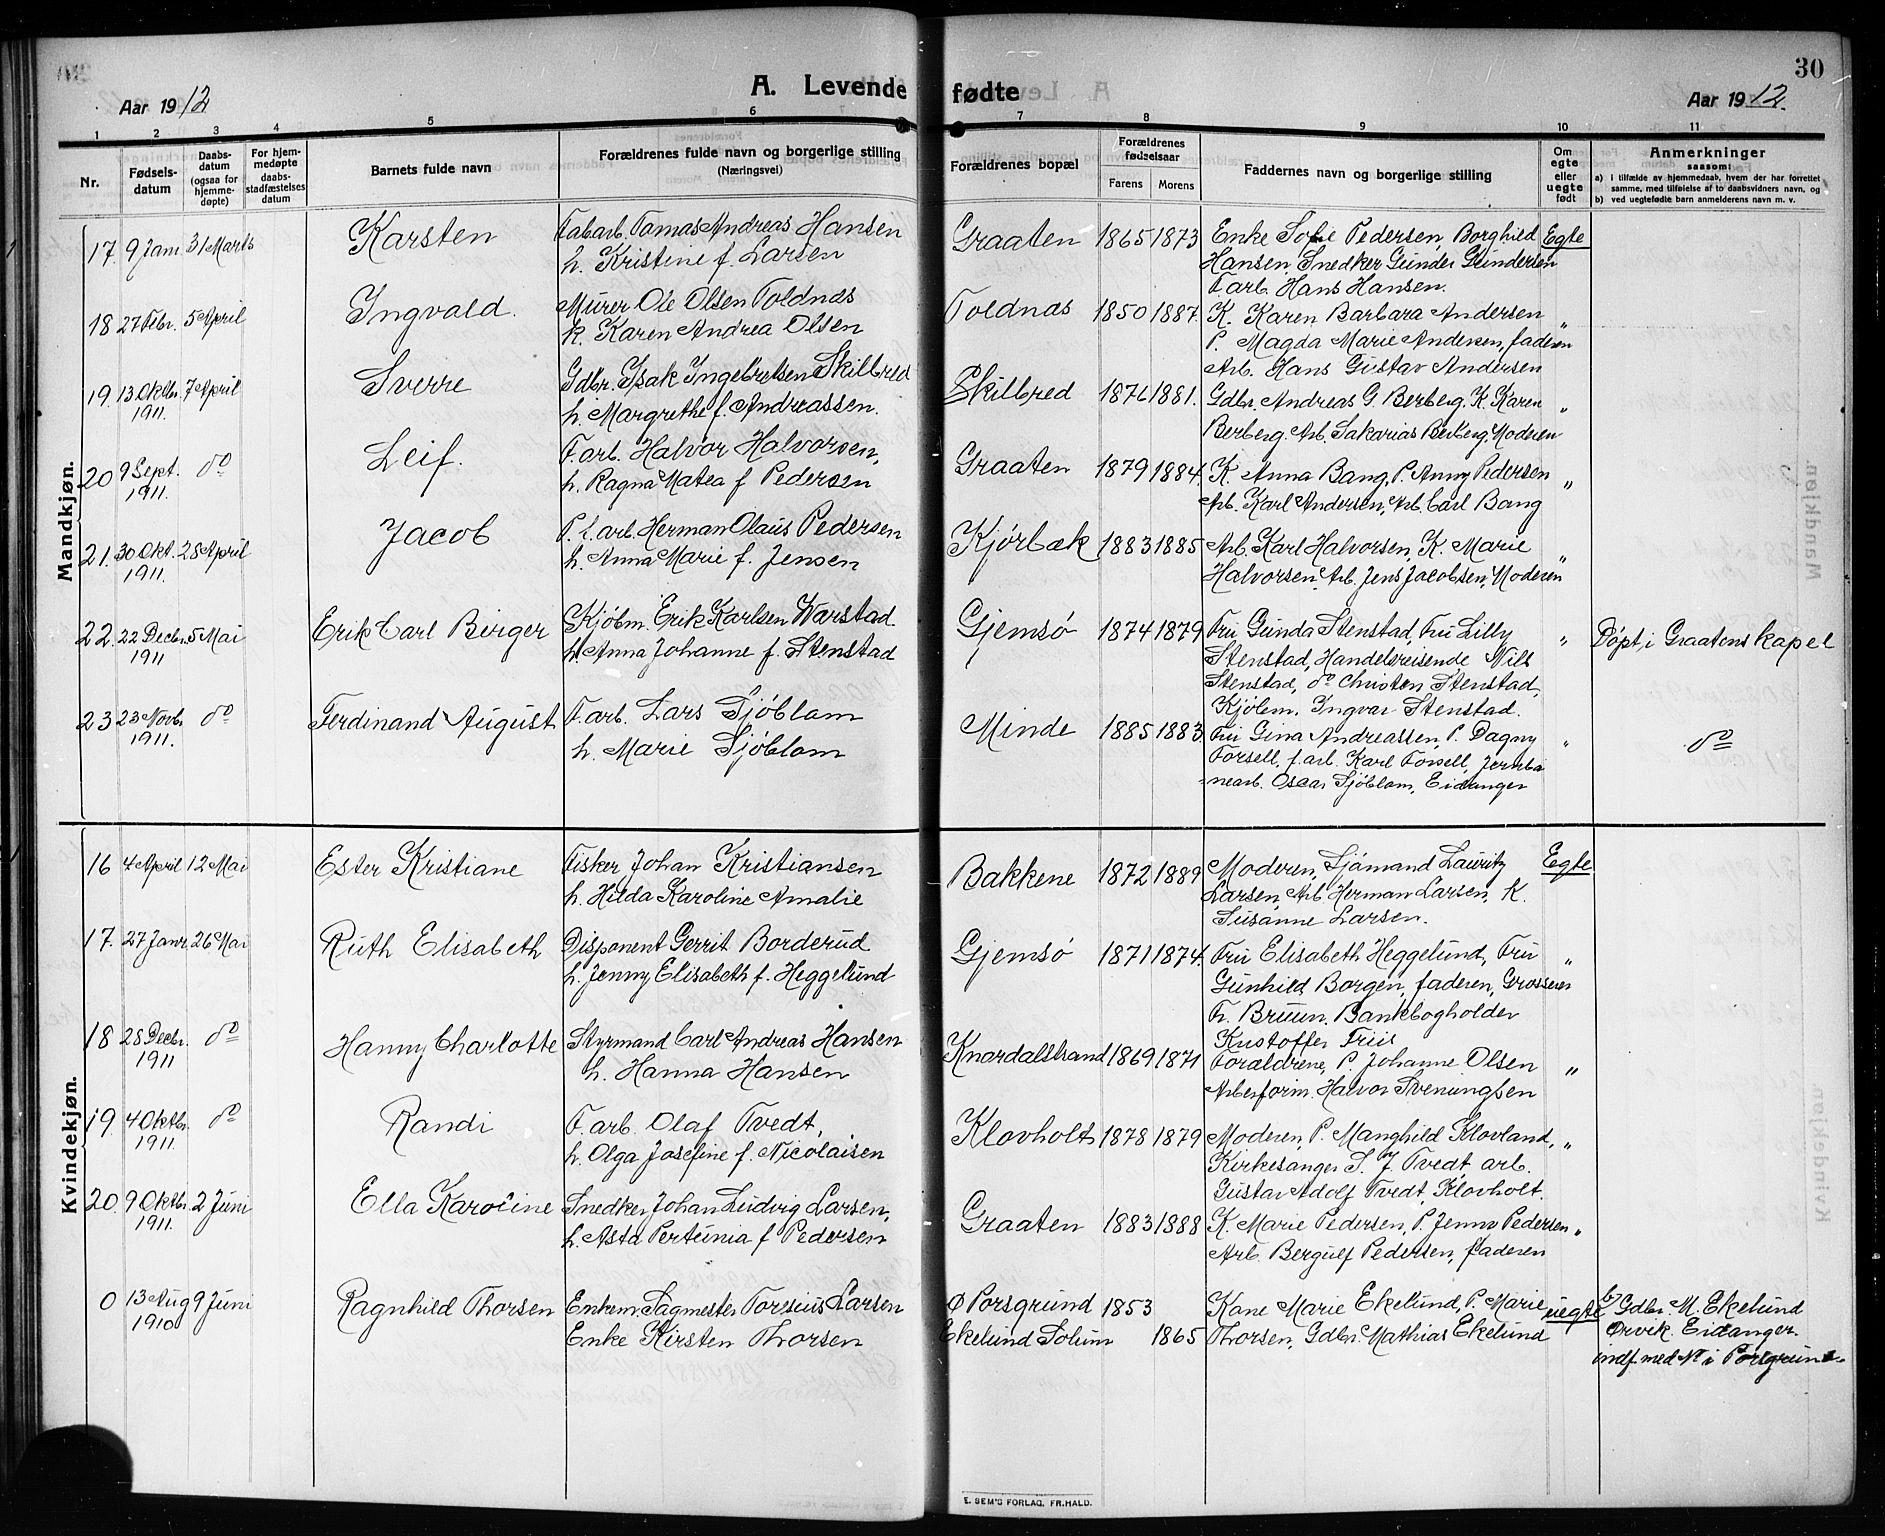 30
A. Levende fødte
Aar 1912
Aar 1912.
1 2 3 4 5 6 7 8 9 10 11
Nr.
Fødsels-
datum
Daabs-
datum
(ogsaa for
hjemme-
døpte)
For hjem-
medøpte
daabs-
stadfæstelses
datum
Barnets fulde navn
Forældrenes fulde navn og borgerlige stilling
(Næringsvei)
Forældrenes bopæl
Forældrenes
fødselsaar
Farens Morens
Faddernes navn og borgerlige stilling
Om
egte
eller
uegte
født
Anmerkninger
saasom:
a) i tilfælde av hjemmedaab, hvem der har forrettet
samme, med tilføielse af to daabsvidners navn, og
b) ved uegtefødte barn anmelderens navn m. v.
Mandkjøn.
17. 9 Jan. 31 Marts Karsten
Fabarb. Tomas Andreas Hansen
h. Kristine f. Larsen
Graaten 1865 1873
Enke Sofie Pedersen, Borghild
Hansen, Snedker Gunder Gundersen
Farb. Hans Hansen.
Egte
18 27 Febr. 5 April Ingvald.
Murer Ole Olsen Toldnæs
k. Karen Andrea Olsen
Toldnæs 1850 1887.
K. Karen Barbara Andersen
P. Magda Marie Andersen, faderen
Arb. Hans Gustav Andersen
"
19. 13 Oktbr. 7 April Sverre
1911.
Gdbr. Isak Ingebretsen Skilbred
h. Margrethe f. Andreassen.
Skilbred 1876 1881.
Gdbr. Andreas G. Berberg. K. Karen
Berberg. Arb. Sakarias Berberg, Moderen
"
20 9 Sept. do Leif.
1911.
F.arb. Halvor Halvorsen,
h. Ragna Matea f Pedersen
Graaten 1879 1884.
K. Anna Bang, P. Anny Pedersen
Arb. Karl Andersen, Arb. Carl Bang
"
21. 30 Okt. 28 April Jacob
1911.
P. t. arb. Herman Olaus Pedersen
h. Anna Marie f. Jensen
Kjørbæk 1883 1885
Arb. Karl Halvorsen, K. Marie
Halvorsen, Arb. Jens Jacobsen, Moderen
"
22. 22 Decbr. 5 Mai Erik Carl Birger
1911
Kjøbm. Erik Karlsen Warstad.
h. Anna Johanne f. Stenstad
Gjemsø 1874 1879
Fru Gunda Stenstad, Fru Lilly
Stenstad, Handelsreisende Nils
Stenstad, do Christen Stenstad,
Kjøbm. Ingvar Stenstad.
" Døpt i Graatens kapel
23 23 Novbr. do Ferdinand August
1911.
F.arb. Lars Sjöblom
h. Marie Sjöblom
Minde 1885 1883
Fru Gina Andreassen, P. Dagny
Forsell, f. arb. Karl Forsell, Jernba
nearb. Oscar Sjöblom, Eidanger
" do
Kvindekjøn.
16 4 April 12 Mai Ester Kristiane
Fisker Johan Kristiansen
h. Hilda Karoline Amalie
Bakkene 1872 1889
Moderen, Sjømand Lauritz
Larsen, Arb Herman Larsen, K.
Susanne Larsen.
Egte
17. 27 Janr. 26 Mai Ruth Elisabeth
Disponent Gerrit Borderud
h. Jenny Elisabeth f. Heggelund
Gjemsø 1871 1874.
Fru Elisabeth Heggelund, Fru
Gunhild Borgen, faderen, Grosserer
Th. Bruun, Bankbogholder
Kristoffer Friis
"
18 28 Decbr. do Hanny Charlotte
1911
Styrmand Carl Andreas Hansen
h. Hanna Hansen
Knardalstrand 1869 1871
Forældrene, P. Johanne Olsen
Arbeformr. Halvor Svenungsen
"
19. 4 Oktbr. do Randi
1911.
F. arb. Olaf Tvedt,
h. Olga Josefine f. Nicolaisen
Klovholt 1878 1879
Moderen, P. Manghild Klovland,
Kirkesanger S. J. Tvedt arb.
Gustav Adolf Tvedt, Klovholt.
"
20. 9 Oktbr. 2 Juni Ella Karoline
1911.
Snedker Johan Ludvig Larsen,
h. Asta Pertunia f Pedersen
Graaten 1883 1888
K. Marie Pedersen, P. Jenny Pedersen
Arb. Bergulf Pedersen, faderen
"
0 13 Aug 9 Juni Ragnhild Thorsen
1910
Enkem. Sagmester Torsius Larsen
Enke Kirsten Thorsen
Ø Porsgrund 1853
Ekelund Solum 1865
Kone Marie Ekelund, P. Marie
Thorsen, Gdbr. Mathias Ekelund
uegte
b) Gdbr. M. Ekelund
Ørvik. Eidanger.
indf. med No i Porsgrund.
E. SEM'S FORLAG, FR.HALD.